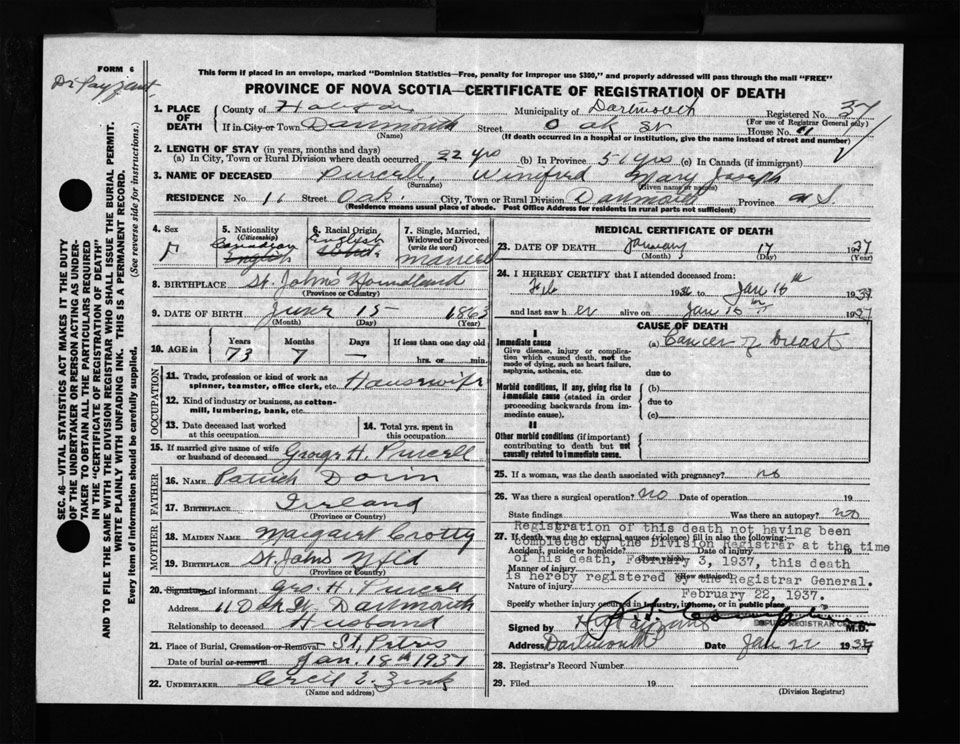 FORM 6
Dr Payzant.
This form if placed in an envelope, marked "Dominion Statistics—Free, penalty for improper use $300," and properly addressed will pass through the mail "FREE"
PROVINCE OF NOVA SCOTIA—CERTIFICATE OF REGISTRATION OF DEATH
1. PLACE OF DEATH
County of Halifax Municipality of Dartmouth Registered No. 37
(For use of Registrar General only)
If in City or Town Dartmouth Street Oak St House No. 11
(Name) (If death occurred in a hospital or institution, give the name instead of street and number)
2. LENGTH OF STAY (in years, months and days)
(a) In City, Town or Rural Division where death occurred 22 yrs (b) In Province 51 yrs (c) In Canada (if immigrant)
3. NAME OF DECEASED Purcell, Winifred Mary Joseph
(Surname) (Given name or names)
RESIDENCE No. 11 Street Oak. City, Town or Rural Division Dartmouth Province N.S.
(Residence means usual place of abode. Post Office Address for residents in rural parts not sufficient)
4. Sex
F
5. Nationality
(Citizenship)
Canadian
English
6. Racial Origin
English
7. Single, Married, Widowed or Divorced
(write the word)
married
8. BIRTHPLACE St. John's Newfoundland
(Province or Country)
9. DATE OF BIRTH June 15 1863
(Month) (Day) (Year)
10. AGE in Years Months Days If less than one day old
73 7 — hrs. or min.
OCCUPATION
11. Trade, profession or kind of work as spinner, teamster, office clerk, etc. Housewife
12. Kind of industry or business, as cotton-mill, lumbering, bank, etc.
13. Date deceased last worked at this occupation
14. Total yrs. spent in this occupation
15. If married give name of wife or husband of deceased George H. Purcell
FATHER
16. NAME Patrick
17. BIRTHPLACE Ireland
(Province or Country)
MOTHER
18. MAIDEN NAME Margaret Crotty
19. BIRTHPLACE St. John's Nfld
(Province or Country)
20. Signature of informant Geo. H. Purcell
Address 11 Oak St. Dartmouth
Relationship to deceased Husband
21. Place of Burial, Cremation or Removal St. Peters
Date of burial or removal Jan. 18th 1937
22. UNDERTAKER Cecil E. Zink
(Name and address)
MEDICAL CERTIFICATE OF DEATH
23. DATE OF DEATH January 17 1937
(Month) (Day) (Year)
24. I HEREBY CERTIFY that I attended deceased from:
Feb 1936 to Jan 16th 1937
and last saw her alive on Jan 16th 1937
CAUSE OF DEATH
I
Immediate cause (a) Cancer of breast
Give disease, injury or complication which caused death, not the mode of dying, such as heart failure, asphyxia, asthenia, etc.
due to
Morbid conditions, if any, giving rise to immediate cause (stated in order proceeding backwards from immediate cause).
(b)
due to
(c)
II
Other morbid conditions (if important) contributing to death but not causally related to immediate cause.
25. If a woman, was the death associated with pregnancy? no
26. Was there a surgical operation? no Date of operation 19
State findings Was there an autopsy? no
27. If death was due to external causes (violence) fill in also the following:
Accident, suicide or homicide? Date of injury 19
Manner of injury
(How sustained)
Nature of injury
Registration of this death not having been
completed by the Division Registrar at the time
of his death, February 3, 1937, this death
is hereby registered by the Registrar General.
February 22, 1937.
Specify whether injury occurred in industry, in home, or in public place
Signed by M.D.
Address Dartmouth Date Jan 22 1937
28. Registrar's Record Number
29. Filed 19
(Division Registrar)
SEC. 46—VITAL STATISTICS ACT MAKES IT THE DUTY
OF THE UNDERTAKER OR PERSON ACTING AS UNDERTAKER
TO OBTAIN ALL THE PARTICULARS REQUIRED
IN THE "CERTIFICATE OF REGISTRATION OF DEATH"
AND TO FILE THE SAME WITH THE DIVISION REGISTRAR WHO SHALL ISSUE THE BURIAL PERMIT.
WRITE PLAINLY WITH UNFADING INK. THIS IS A PERMANENT RECORD.
Every item of information should be carefully supplied. (See reverse side for instructions.)